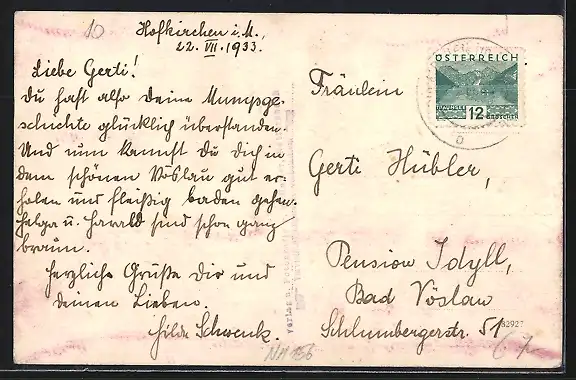 10
Hofkirchen i. M.,
22. VII. 1933.
Liebe Gerti!
Du hast also deine Mumpsge-
schichte glücklich überstanden.
Und nun kannst Du Dich in
dem schönen Vöslau gut er-
holen und fleißig baden gehen.
Helga u. Harald sind schon ganz
braun.
Herzliche Grüße Dir und
deinen Lieben.
Hilde Schwenk.
NM 156
ÖSTERREICH
TRAUNSEE
12 GROSCHEN
Fräulein
Gerti Hübler,
Pension Idyll,
Bad Vöslau
Schlumbergerstr. 51